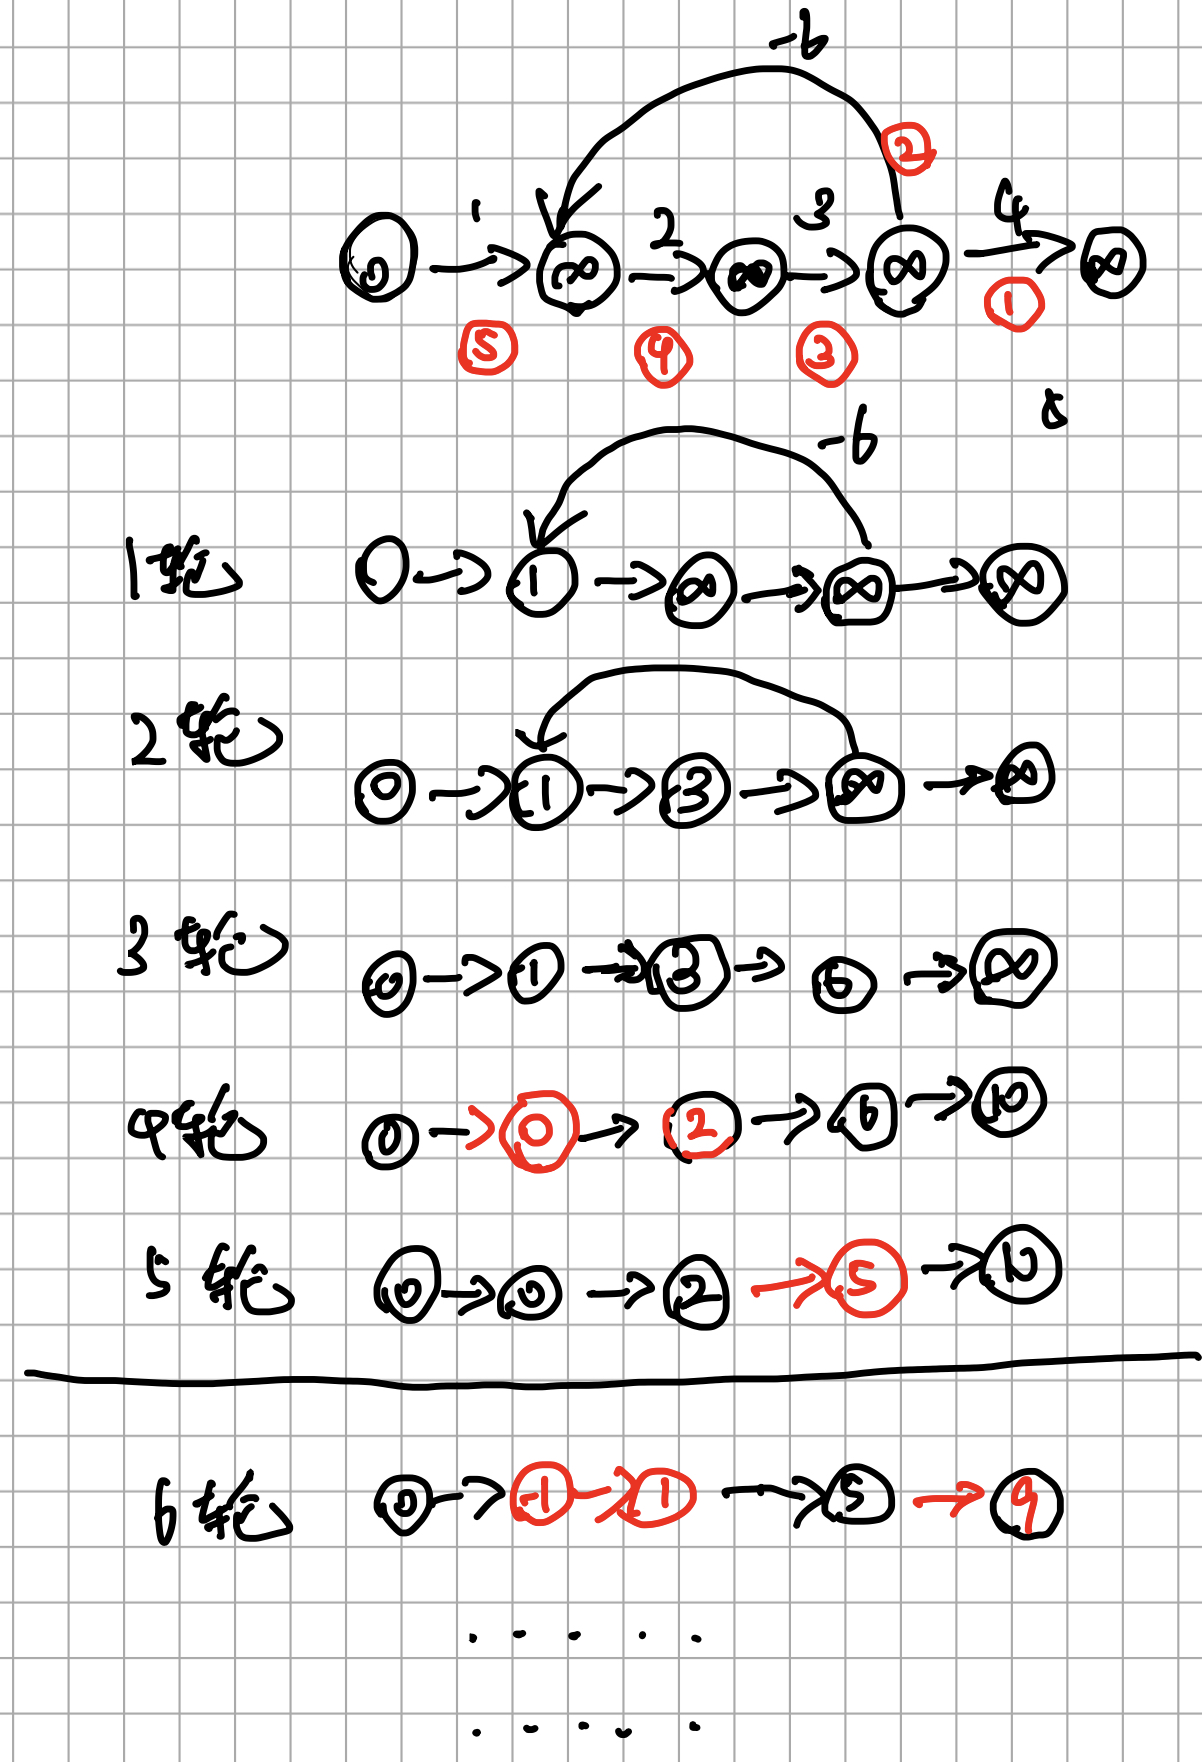 -6
②
1 2 3 4
0 ∞ ∞ ∞ ∞
⑤ ④ ③ ①
-6
1轮 0 1 ∞ ∞ ∞
2轮 0 1 3 ∞ ∞
3轮 0 1 3 6 ∞
4轮 0 0 2 6 10
5轮 0 0 2 5 10
6轮 0 -1 1 5 9
. . . . .
. . . . .